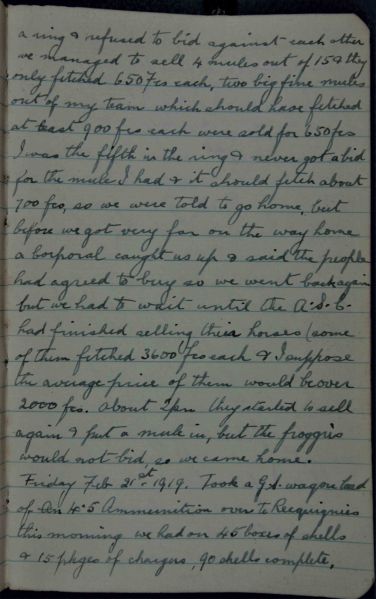 a ring & refused to bid against each other
we managed to sell 4 mules out of 15 & they
only fetched 650 Frs each, two big fine mules
out of my team which should have fetched
at least 900 frs each were sold for 650 frs
I was the fifth in the ring & never got a bid
for the mule I had & it should fetch about
700 frs, so we were told to go home, but
before we got very far on the way home
a corporal caught us up & said the people
had agreed to buy so we went back again
but we had to wait until the A.S.C.
had finished selling their horses (some
of them fetched 3600 frs each & I suppose
the average price of them would be over
2000 frs. About 2pm they started to sell
again & put a mule in, but the froggies
would not bid, so we came home.
Friday Feb 21st 1919. Took a G.S. wagon load
of 4.5 Ammunition over to Recquignies
this morning we had on 45 boxes of shells
& 15 pkges of chargers, 90 shells complete,